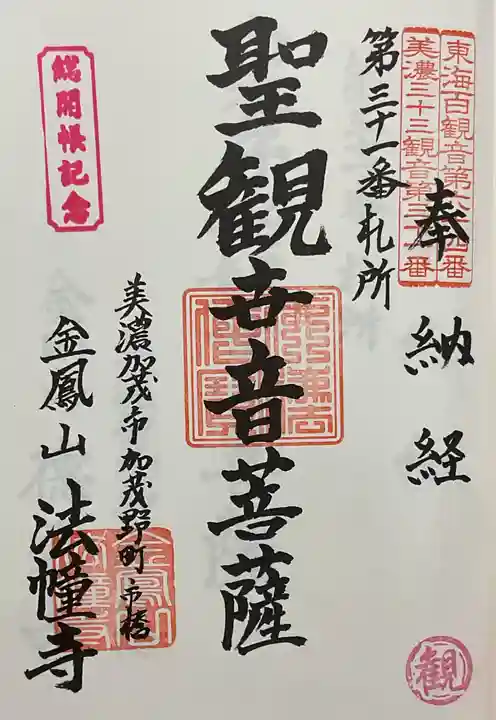 東海百観音第
美濃三十三観音第三十一番
奉納経
第三十一番札所
聖観世音菩薩
美濃加茂市加茂野町市橋
金鳳山 法幢寺
総開帳記念
観